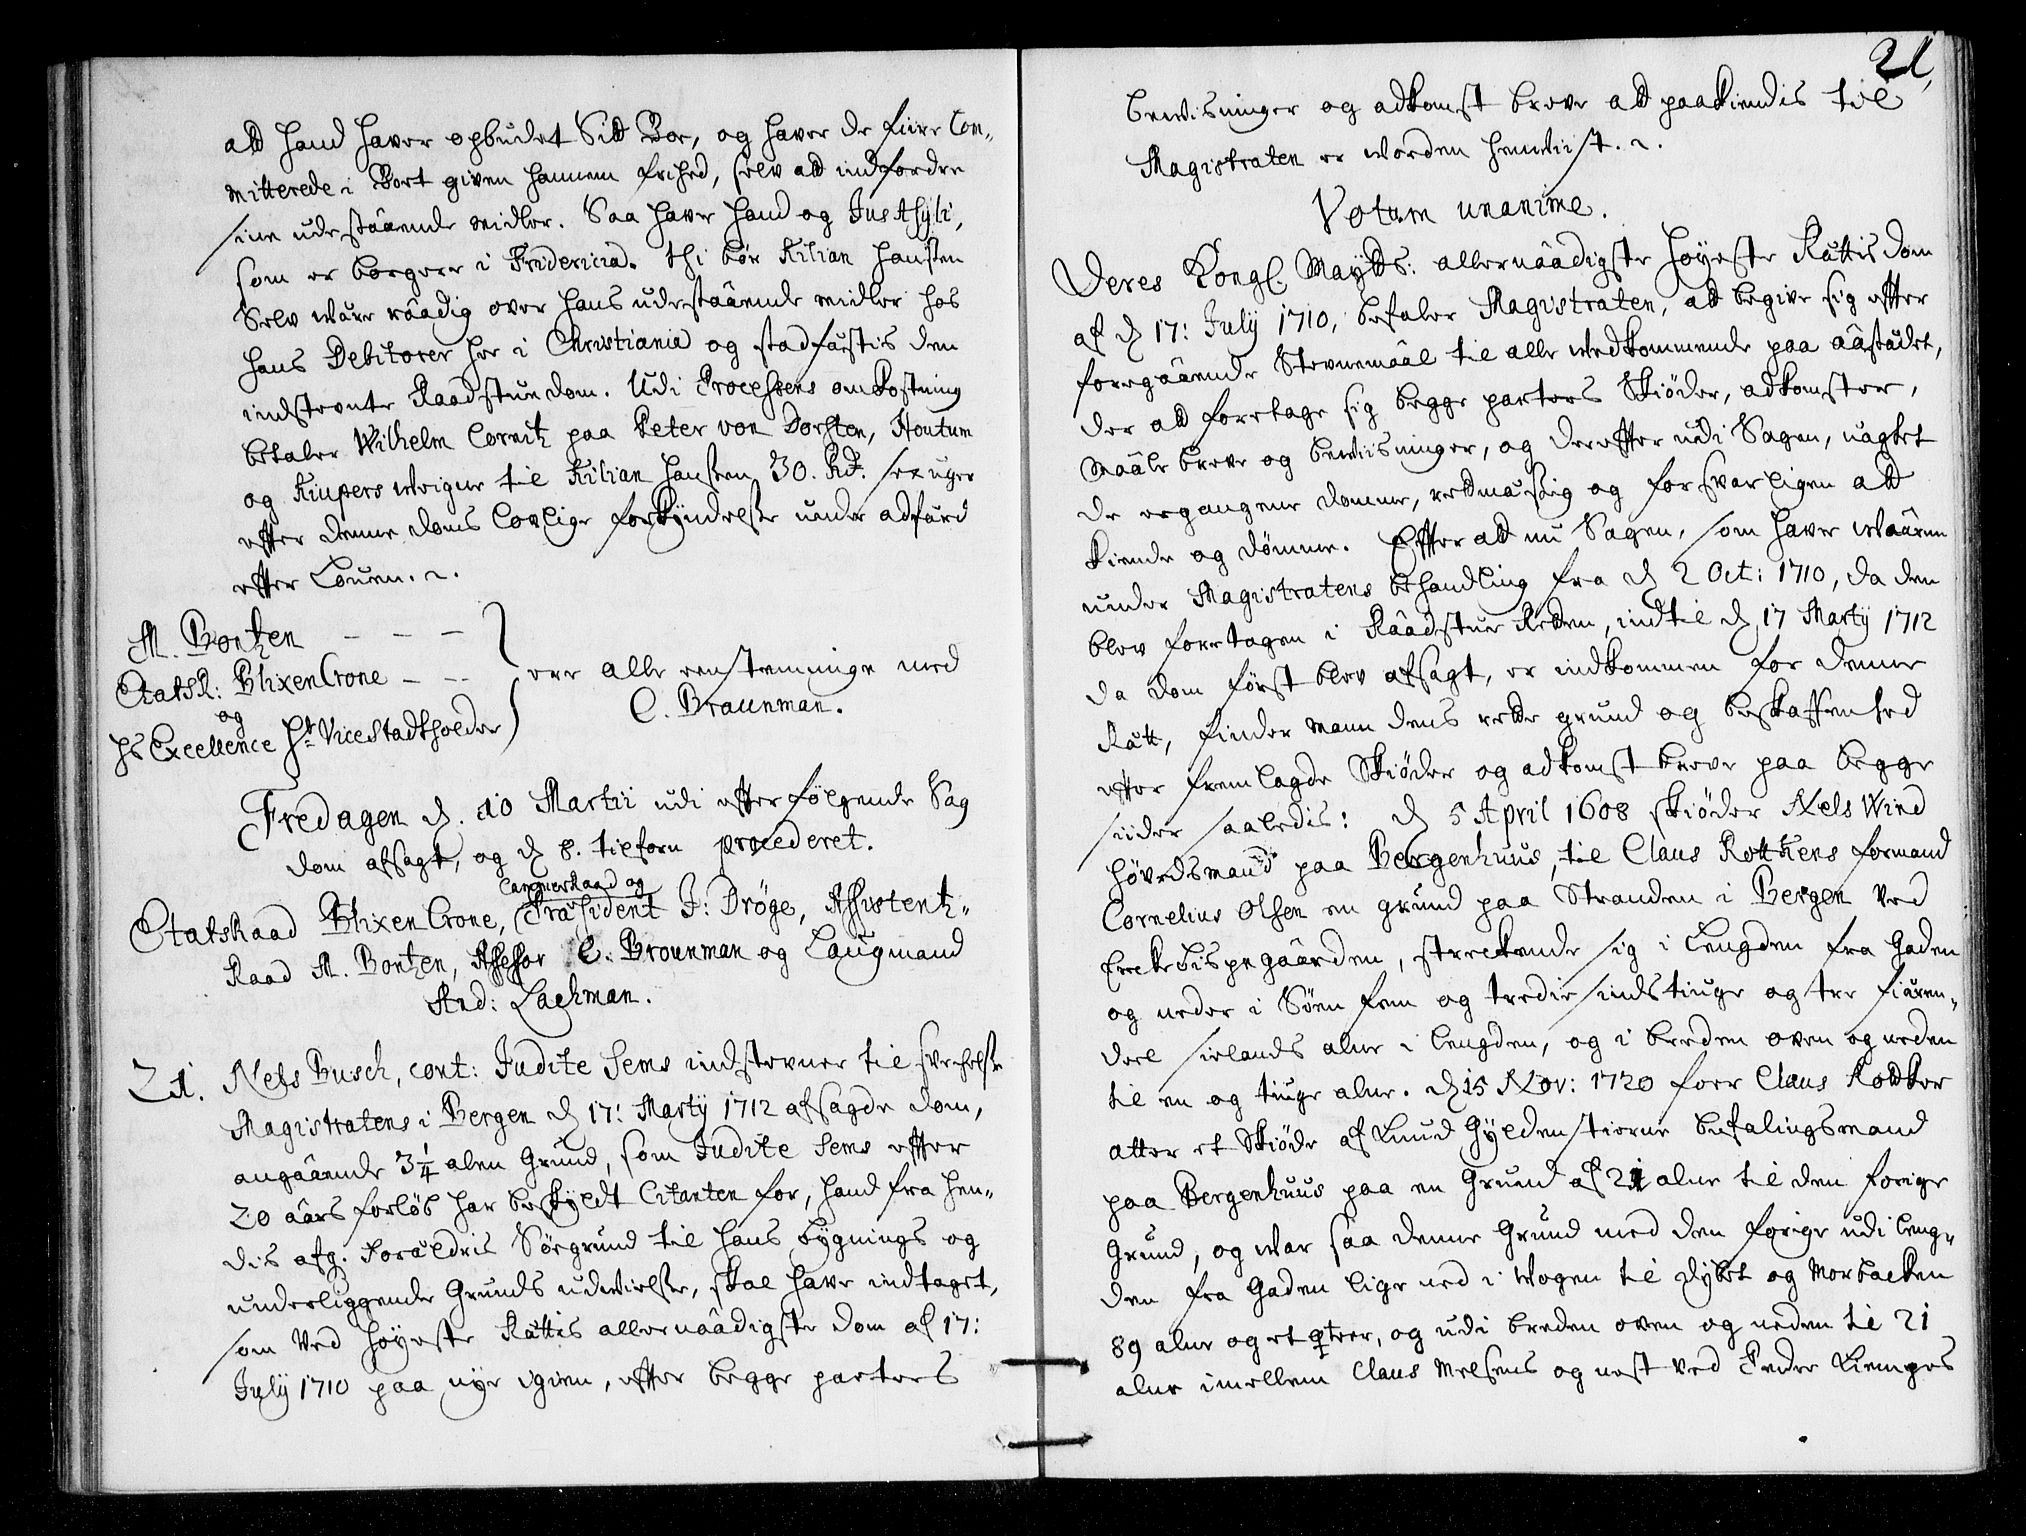 att hand haver opbudet Sitt Boe, og haver de fiire Com-
mitterede i Bort given hannem frihed, selv att indfordre
sine udestaaende midler. Saa haver hand og Jus Asyli,
som er borgere i Fridericia. thi bör Kilian Hanssen
Selv være raadig over hans udestaaende midler hos
hans Debitorer her i Christiania og stadfæstis den
indstevnte Raadstue dom. Udi Processens omkostning
betaler Wilhelm Cornitz paa Peter von Dorsten, Houtum
og Kiupers weigne til Kilian Hanssen 30. Rd. sex uger
effter denne doms Lovlige forkyndelse under adfærd
effter Louen. 2.
M. Bontzen - - -
EtatsR: BlixenCrone - -
og
Hs Excellence Hr ViceStadtholder
vare alle eenstemmige med
C. Braunman.
Fredagen d. 10 Martii udi effterfølgende Sag
dom afsagt, og d 8. tilforn procederet.
CammerRaad og
EtatsRaad BlixenCrone, Præsident J: Dröge, Assistentz-
Raad M. Bontzen, Assessor C. Brounman og Laugmand
And: Lachman.
21. Nels Busch, cont: Judite Sems indstevner til svechelse
Magistratens i Bergen d 17: Martÿ 1712 afsagde dom,
angaaende 3 1/4 alen Grund, som Judite Sems effter
20 aars forløb har beskyldt Citanten for, hand fra hen-
dis afg. Forældris Söegrund til hans bygnings og
underliggende Grunds udvielse, skal have indtaget,
som ved høyeste Rættis allernaadigste dom af 17:
Julÿ 1710 paa nye igien, effter begge parters
21,
bevisninger og adkomst breve att paakiendis til
Magistraten er worden henviist. 2.
Votum unanime.
Deres Kongl. Maytts: allernaadigste høyeste Rættis dom
af d 17: Julÿ 1710, befaler Magistraten, att begive sig effter
foregaaende Stevnemaal til alle vedkommende paa aastædet,
der att foretage sig begge parters Skiöder, adkomster,
maale breve og beviisninger, og dereffter udi Sagen, uagtet
de ergangene domme, rettmæssig og forsvarligen att
kiende og dömme. Effter att nu Sagen, som haver waaren
under Magistratens behandling fra d 2 Oct: 1710, da den
blev foretagen i Raadstue Retten, indtil d 17 Martÿ 1712
da dom først blev afsagt, er indkommen for denne
Rætt, finder mann dens rette grund og beskaffenhed
effter fremlagde Skiöder og adkomst breve paa begge
siider saaledis: d 5 April 1608 skiöder Nels Wind
høvedsmand paa Bergenhuus, til Claus Rottkens formand
Cornelius Olsen en grund paa Stranden i Bergen ved
Erckebispegaarden, streckende sig i Lengden fra Gaden
og neder i Söen fem og tredie sinds tiuge og tre fiæren-
deel sielands alne i lengden, og i breden oven og neden
til en og tiuge alne. d 15 Nov: 1720 foer Claus Rottker
atter et Skiöde af Knud Gyldenstierne befalingsmand
paa Bergenhuus paa en Grund af 21 alne til den forige
Grund, og var saa denne Grund med den forige udi leng-
den fra Gaden lige ned i Wogen til dybet og Morbacken
89 alne og et qter, og udi breden oven og neden til 21
alne imellem Claus Melsens og nest ved Peder Kiempes